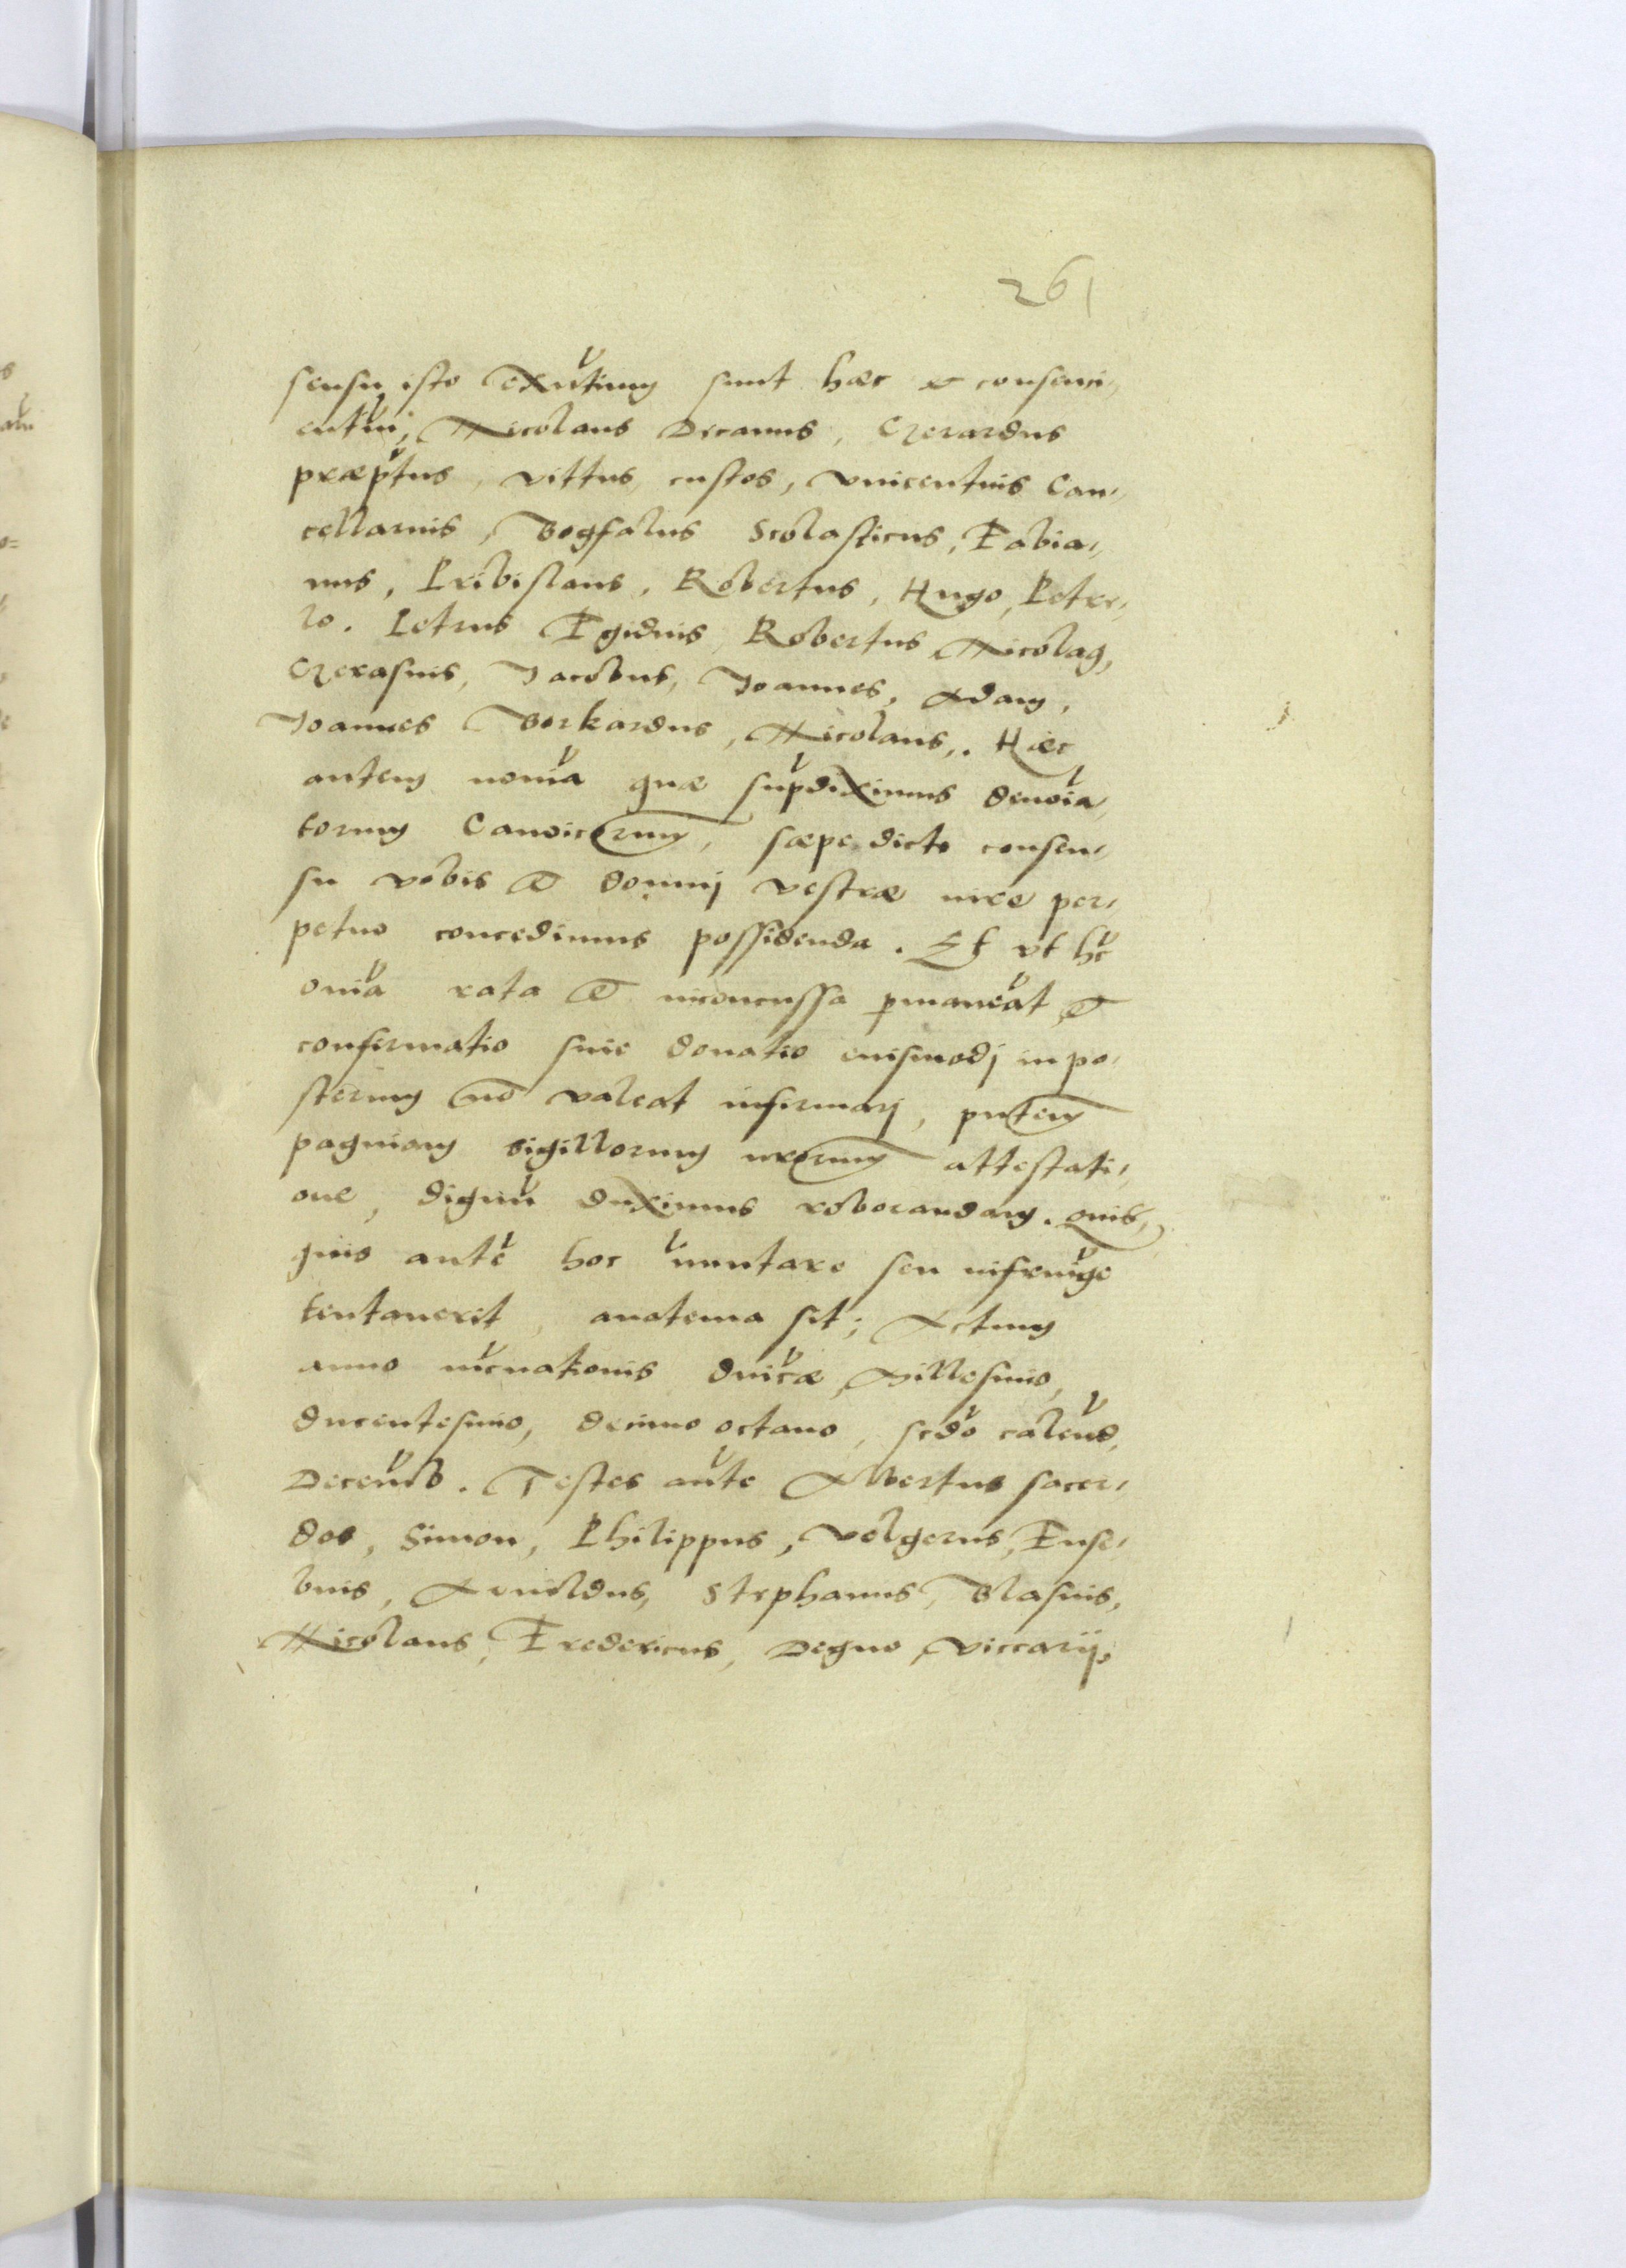 261
sensu isto exũtium sunt hæc et consenci,
entiũ; Nicolaus Decanus, Gerardus
præp̃tus, Vittus, custos, Vincentius Can,
cellarius, Bogfalus Scolasticus, Fabia,
nus, Pribislaus, Robertus, Hugo, Petre,
lo. Petrus Egidius, Robertus, Nicolaus,
Gerasius, Jacobus, Joannes, Adam,
Joannes Borkardus, Nicolaus,. Hæc
autem noĩa quæ sup̃diximus denoĩa,
torum Canoicorum, sæpe dicto consen,
su vobis et domuj vestræ iure per,
petuo concedimus possidenda. Et ut hc̃
om̃ia rata et inconcussa p̱maneãt et
confirmatio sive donatio eiusmodj in po,
sterum nõ valeat infirmarj, pñtem
paginam sigillorum nrorum attestati,
one, dignũ duximus roborandam. Quis,
quis autẽ hoc ĩmutare seu infrĩge
tentauerit, anatema sit; Actum
anno incñationis dñicæ, Millesimo,
ducentesimo, decimo octauo, scdõ caleñd,
Deceñb. Testes aũte Albertus sacer,
dos, Simon, Philippus, Volgerus, Euse,
bius, Arnoldus, Stephanus, Blasius,
Nicolaus, Fredericus, Degno, Viccarij,